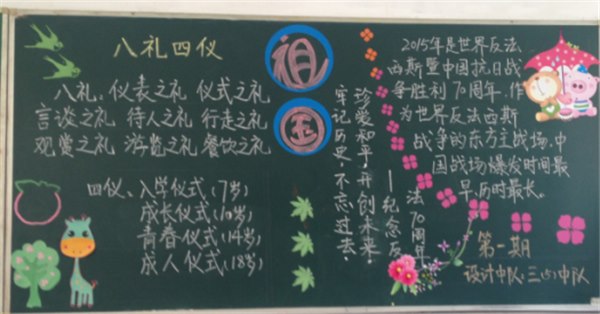 八礼四仪
八礼:仪表之礼 仪式之礼
言谈之礼 待人之礼 行走之礼
观赏之礼 游览之礼 餐饮之礼
四仪:入学仪式:(7岁)
成长仪式:(10岁)
青春仪式:(14岁)
成人仪式:(18岁)
祖
国
珍爱和平,开创未来,
牢记历史,不忘过去
——纪念反
法70周年
2015年是世界反法
西斯暨中国抗日战
争胜利70周年.作
为世界反法西斯
战争的东方主战场,中
国战场爆发时间最
早,历时最长。
第一期
设计中队:三(5)中队